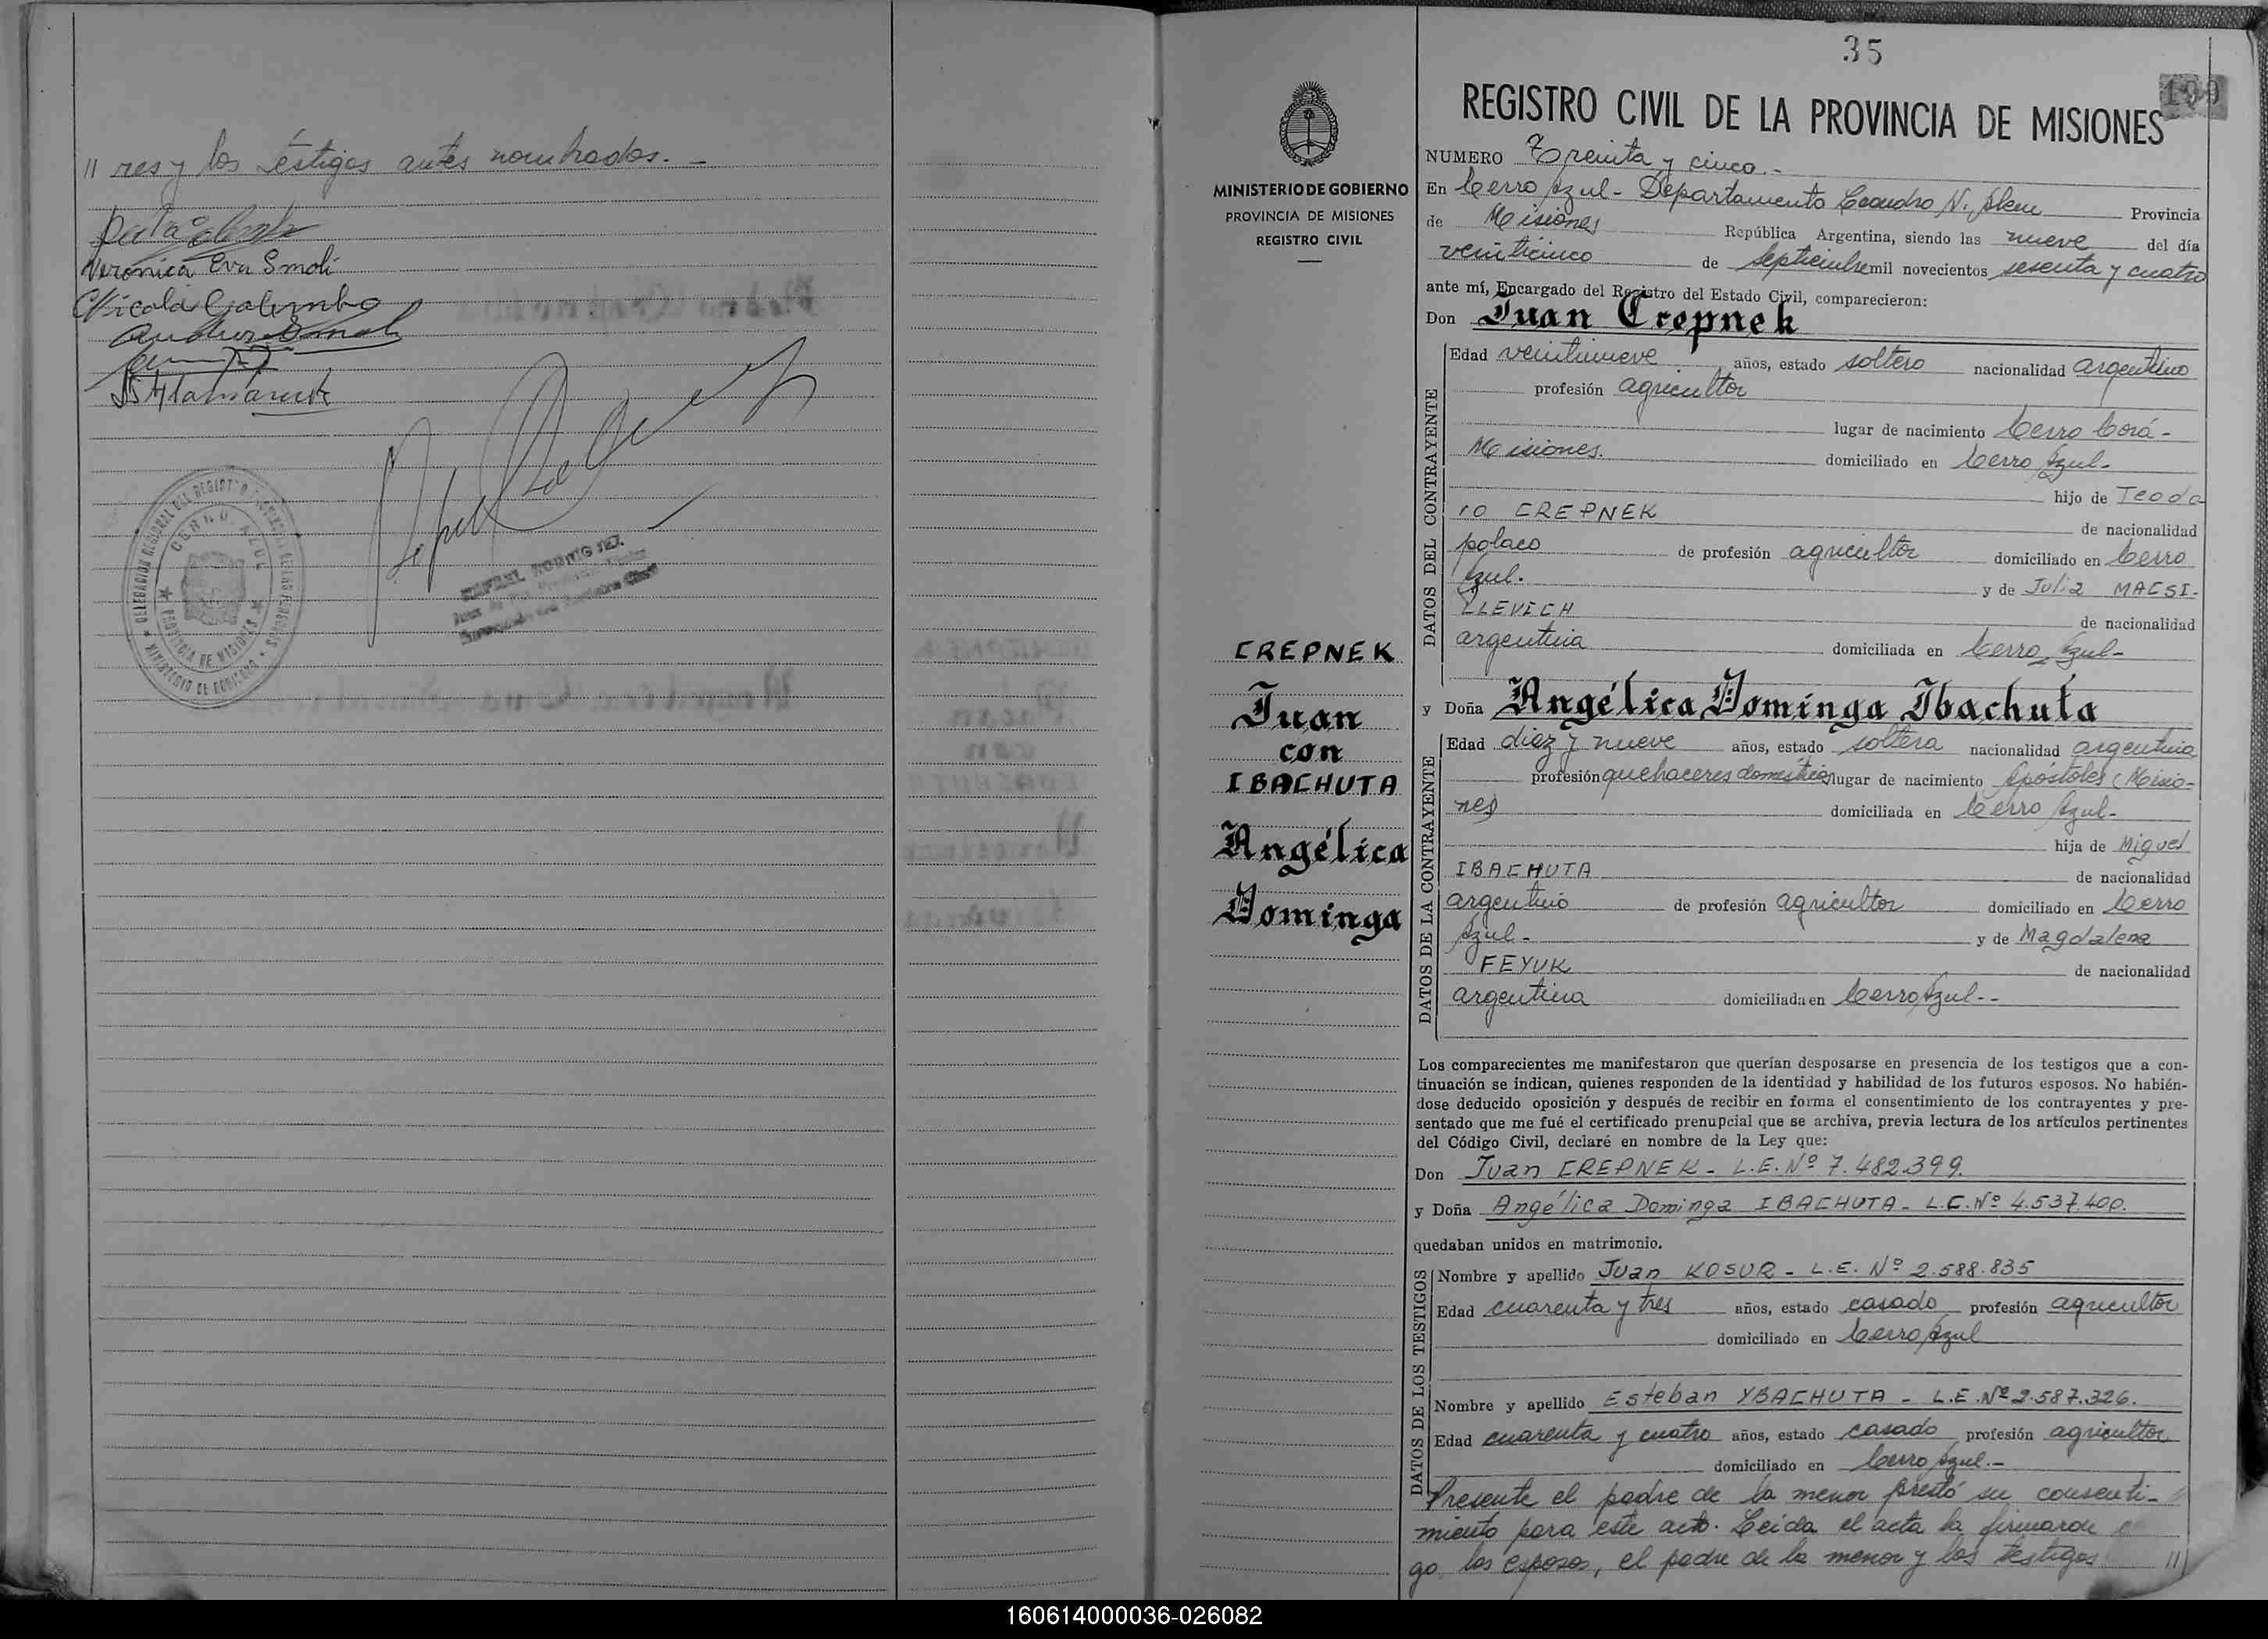 ıı res y los testigos antes nombrados. -
Veronica Eva Smoli
Nicola Golembo
DELEGACION REGIONAL DEL REGISTRO PROVINCIAL DE LAS PERSONAS
CERRO AZUL
PROVINCIA DE MISIONES
MINISTERIO DE GOBIERNO
RAFAEL RODRIGUEZ
35
199
MINISTERIO DE GOBIERNO
PROVINCIA DE MISIONES
REGISTRO CIVIL
CREPNEK
Juan
con
IBACHUTA
Angélica
Dominga
REGISTRO CIVIL DE LA PROVINCIA DE MISIONES
NUMERO Treinta y cinco.-
En Cerro Azul - Departamento Leandro N. Alem Provincia
de Misiones República Argentina, siendo las nueve del día
veinticinco de septiembre mil novecientos sesenta y cuatro
ante mí, Encargado del Registro del Estado Civil, comparecieron:
Don Juan Crepnek
DATOS DEL CONTRAYENTE
Edad veintinueve años, estado soltero nacionalidad argentino
profesión agricultor
lugar de nacimiento Cerro Corá -
Misiones. domiciliado en Cerro Azul.
hijo de Teodo
ro CREPNEK de nacionalidad
polaco de profesión agricultor domiciliado en Cerro
Azul. y de Julia MACSI-
LLEVICH de nacionalidad
argentina domiciliada en Cerro Azul-
y Doña Angélica Dominga Ibachuta
DATOS DE LA CONTRAYENTE
Edad diez y nueve años, estado soltera nacionalidad argentina
profesión quehaceres domésticos lugar de nacimiento Apóstoles (Misio-
nes) domiciliada en Cerro Azul-
hija de Miguel
IBACHUTA de nacionalidad
argentino de profesión agricultor domiciliado en Cerro
Azul- y de Magdalena
FEYUK de nacionalidad
argentina domiciliada en Cerro Azul--
Los comparecientes me manifestaron que querían desposarse en presencia de los testigos que a con-
tinuación se indican, quienes responden de la identidad y habilidad de los futuros esposos. No habién-
dose deducido oposición y después de recibir en forma el consentimiento de los contrayentes y pre-
sentado que me fué el certificado prenupcial que se archiva, previa lectura de los artículos pertinentes
del Código Civil, declaré en nombre de la Ley que:
Don Juan CREPNEK - L.E. Nº 7.482.399.
y Doña Angélica Dominga IBACHUTA - L.C. Nº 4.537.400.
quedaban unidos en matrimonio.
DATOS DE LOS TESTIGOS
Nombre y apellido Juan KOSUR - L.E. Nº 2.588.835
Edad cuarenta y tres años, estado casado profesión agricultor
domiciliado en Cerro Azul
Nombre y apellido Esteban YBACHUTA - L.E. Nº 2.587.326.
Edad cuarenta y cuatro años, estado casado profesión agricultor
domiciliado en Cerro Azul.-
Presente el padre de la menor prestó su consenti-
miento para este acto. Leida el acta la firmaron
go los esposos, el padre de la menor y los testigos ııı
160614000036-026082